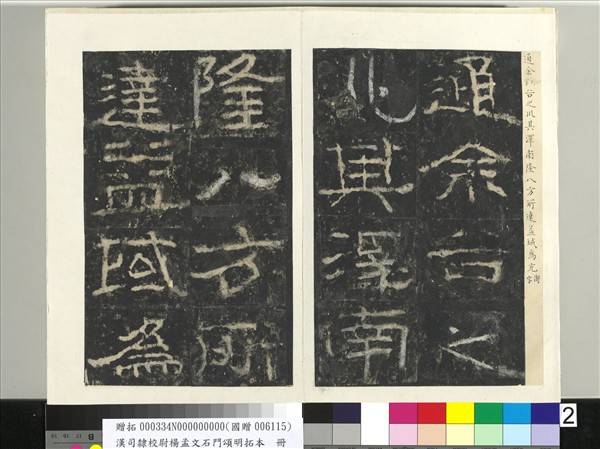 通余谷之川其澤南隆八方所達益域為充
通余谷之
川其澤南
隆八方所
達益域為
贈拓 000334N000000000(國贈 006115)
漢司隸校尉楊孟文石門頌明拓本 冊
2
B